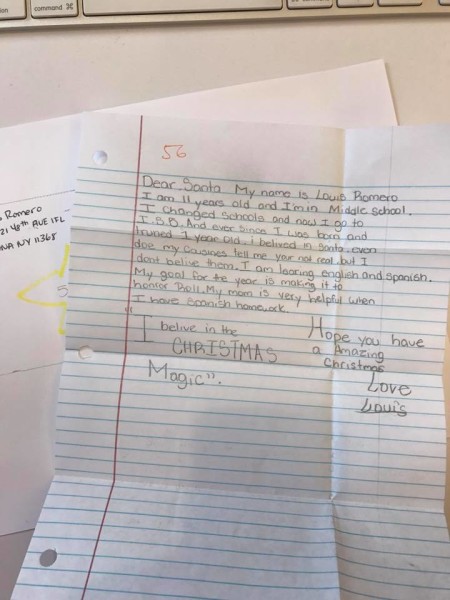 command ⌘
56
Dear Santa My name is Louis Romero
I am 11 years old and I'm in Middle school.
I changed schools and now I go to
I.S.D. And ever since I was born and
truned 1 year old i belived in Santa even
doe my cousines tell me your not real but I
dont belive them. I am learing english and spanish.
My goal for the year is making it to
honor Roll. My mom is very helpful when
I have spanish homework.
"I belive in the
CHRISTMAS
Magic".
Hope you have
a Amazing
Christmas
Love
Louis
Romero
21 48th AVE 1FL
NA NY 11368